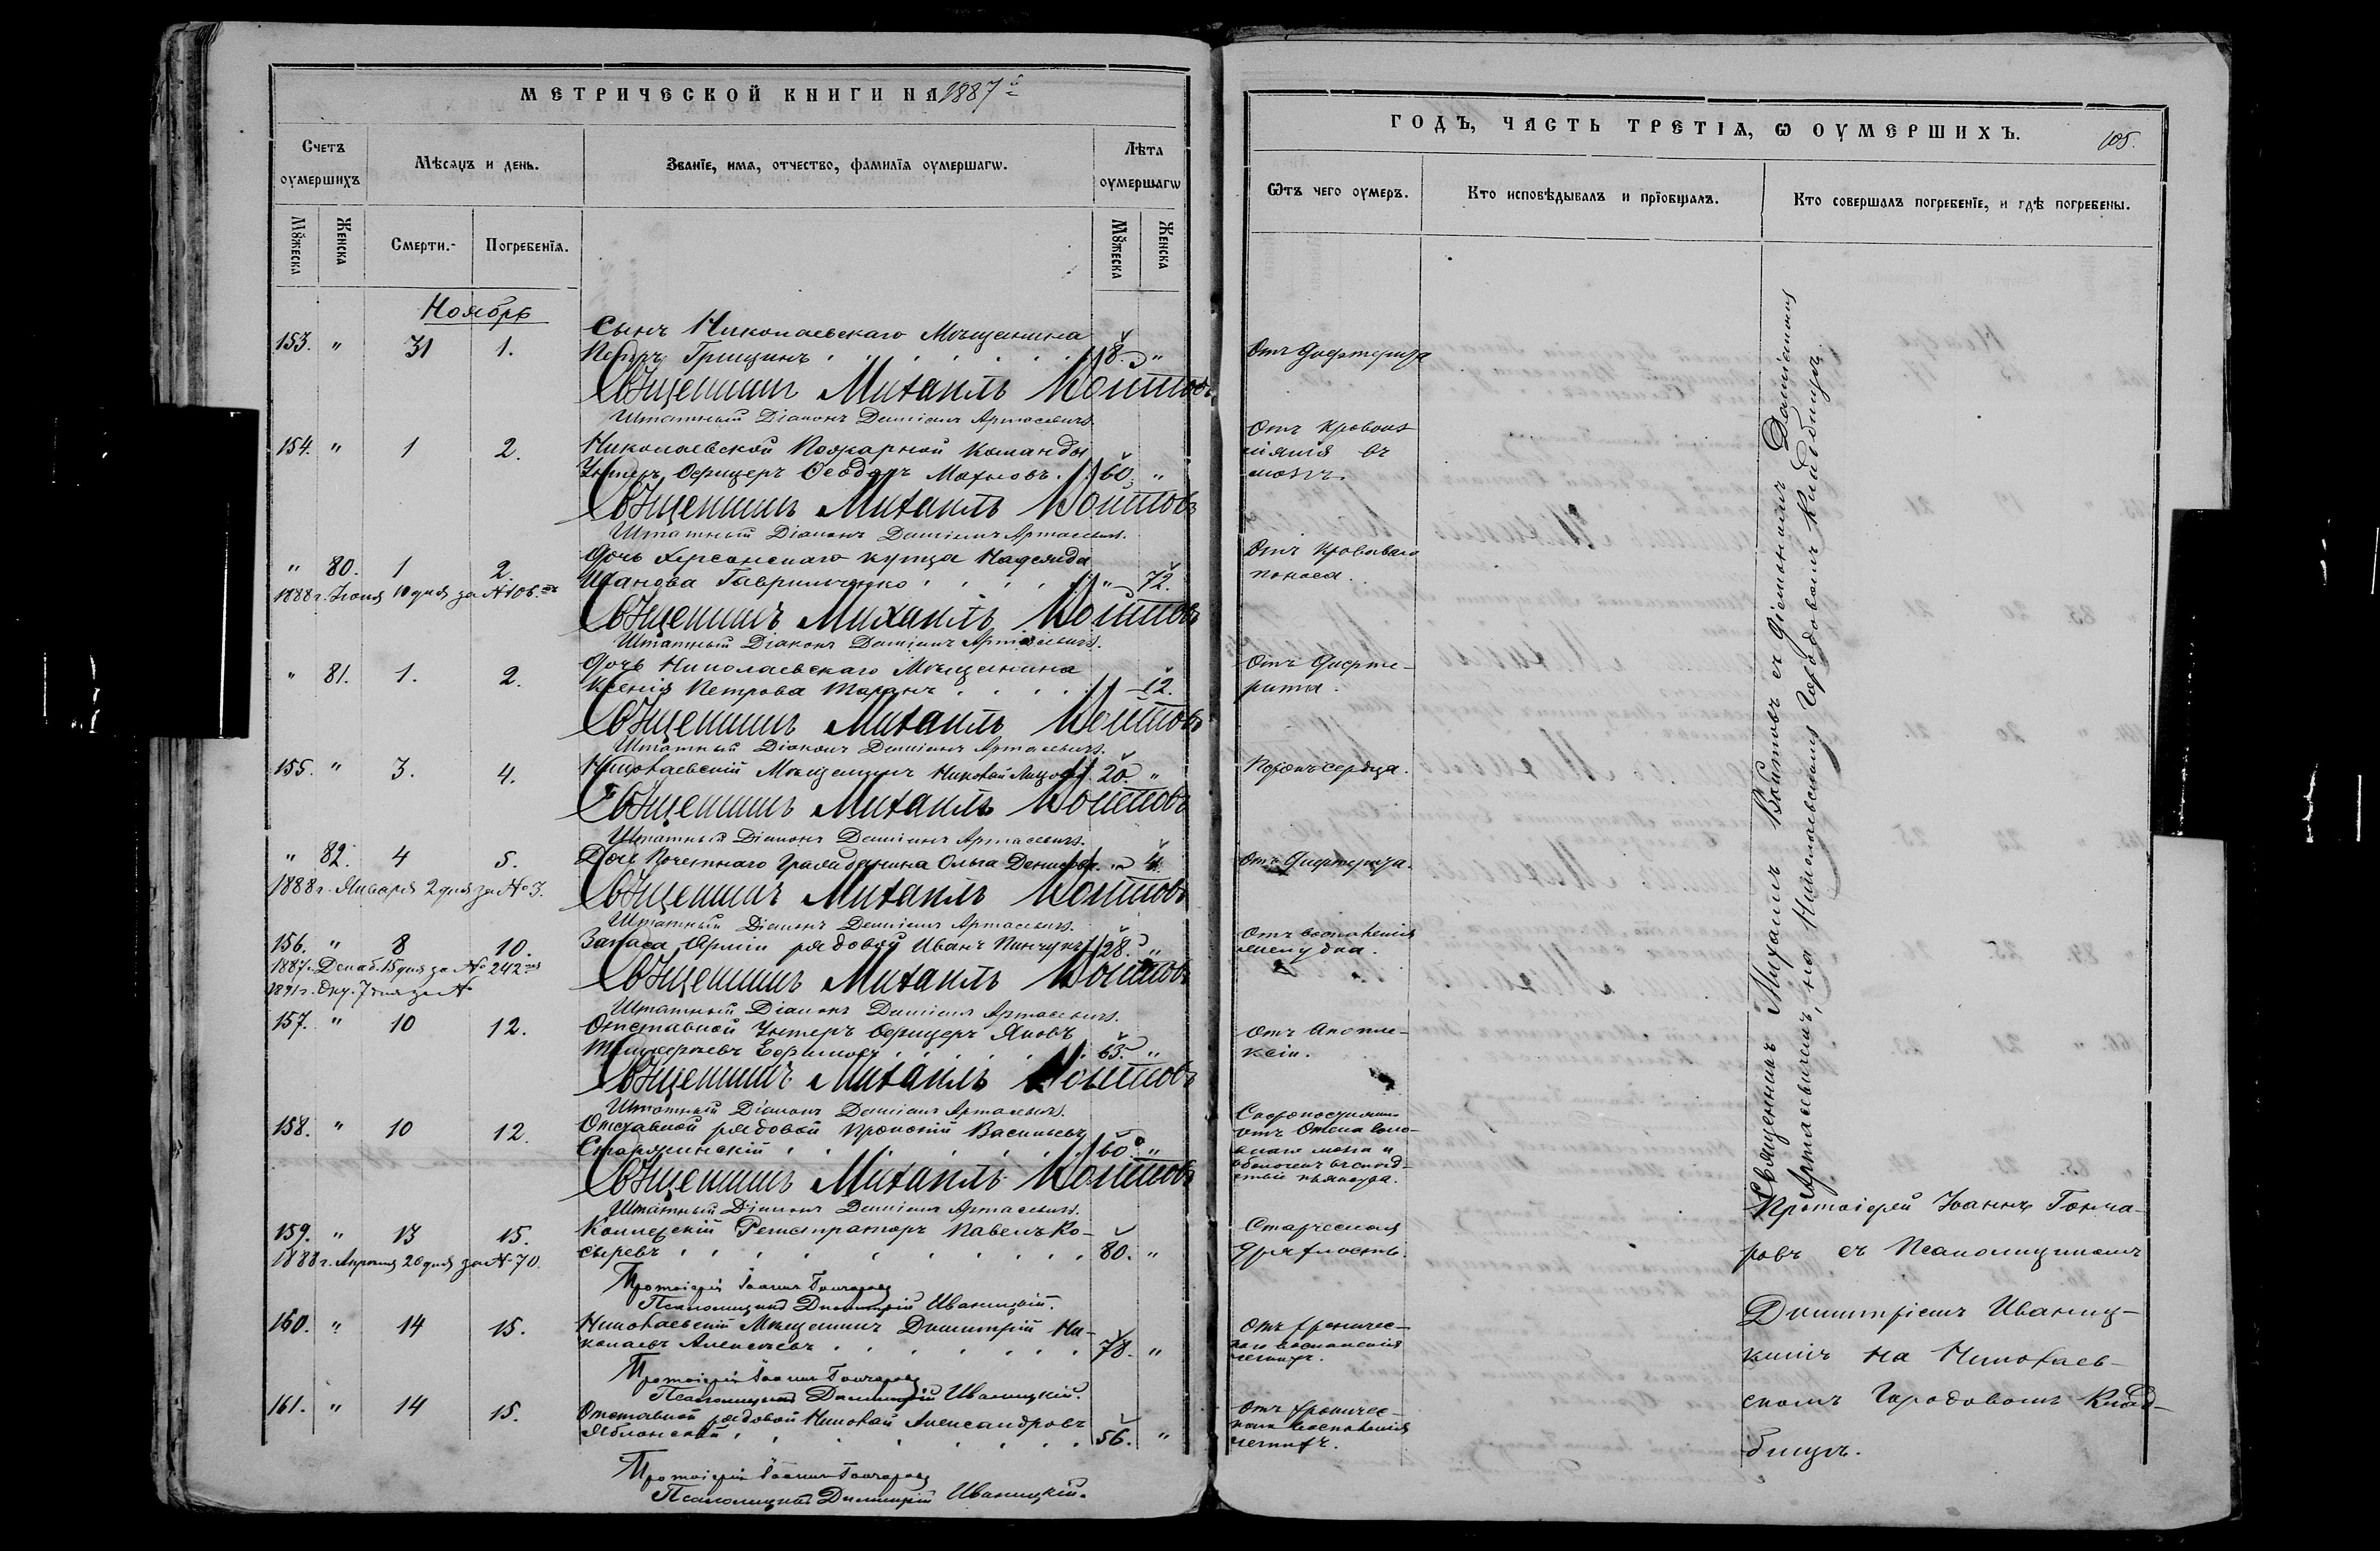 МЕТРИЧЕСКОЙ КНИГИ НА 1887й
Счетъ оумершихъ
Мѣсяцъ и день.
Званїе, имя, отчество, фамилїя оумершагѡ.
Лѣта оумершагѡ
Мꙋжеска
Женска
Смерти.
Погребенїя.
Мꙋжеска
Женска
Ноябрь
153. " 31 1. Сынъ Николаевскаго Мѣщанина
Петръ Грищинъ 8. "
Священникъ Михаилъ Войтовъ
Штатный Діаконъ Даміанъ Артасевичъ.
154. " 1 2. Николаевской Пожарной Команды
Унтеръ Офицеръ Ѳеодоръ Махновъ. 60. "
Священникъ Михаилъ Войтовъ
Штатный Діаконъ Даміанъ Артасевичъ.
" 80. 1 2. Дочь Херсонскаго купца Надежда
Иванова Гавриленко " 72.
1888 г. Іюня 10 дня за № 106.
Священникъ Михаилъ Войтовъ
Штатный Діаконъ Даміанъ Артасевичъ.
" 81. 1. 2. Дочь Николаевскаго Мѣщанина
Ксенія Петрова Таранъ 12.
Священникъ Михаилъ Войтовъ
Штатный Діаконъ Даміанъ Артасевичъ.
155. " 3. 4. Николаевскій Мѣщанинъ Николай 20. "
Священникъ Михаилъ Войтовъ
Штатный Діаконъ Даміанъ Артасевичъ.
" 82. 4 5. Дочь Почетнаго Гражданина Ольга Денисова. " 4.
1888 г. Января 2 дня за № 3.
Священникъ Михаилъ Войтовъ
Штатный Діаконъ Даміанъ Артасевичъ.
156. " 8 10. Запаса Арміи рядовой Иванъ Пинчукъ 28. "
1887 г. Декаб. 15 дня за № 242
1891 г. 7 дня за №
Священникъ Михаилъ Войтовъ
Штатный Діаконъ Даміанъ Артасевичъ.
157. " 10 12. Отставной Унтеръ Офицеръ Яковъ
Ефимовъ 63. "
Священникъ Михаилъ Войтовъ
Штатный Діаконъ Даміанъ Артасевичъ.
158. " 10 12. Отставной рядовой Васильевъ
60. "
Священникъ Михаилъ Войтовъ
Штатный Діаконъ Даміанъ Артасевичъ.
159. " 13 15. Коллежскій Регистраторъ Павелъ Ко-
сыревъ 80. "
1888 г. Апрѣля 20 дня за № 70.
Протоіерей Іоаннъ Гончаровъ
Псаломщикъ Димитрій Иваницкій.
160. " 14 15. Николаевскій Мѣщанинъ Димитрій Ни-
колаевъ Алексѣевъ 78. "
Протоіерей Іоаннъ Гончаровъ
Псаломщикъ Димитрій Иваницкій.
161. " 14 15. Отставной рядовой Николай Александровъ
Яблонскій 56. "
Протоіерей Іоаннъ Гончаровъ
Псаломщикъ Димитрій Иваницкій.
ГОДЪ, ЧАСТЬ ТРЕТІѦ, Ѡ ОУМЕРШИХЪ.
105.
Ѿтъ чего оумеръ.
Кто исповѣдывалъ и прїобщалъ.
Кто совершалъ погребенїе, и гдѣ погребены.
Отъ Дифтерита
Отъ кровоиз-
ліянія въ
мозгъ.
Отъ кроваваго
поноса.
Отъ Дифте-
рита.
Порокъ сердца.
Отъ Дифтерита.
Отъ воспаленія
желудка.
Отъ Апопле-
ксіи.
Скоропостижно
отъ Отека
мозга и
оболочекъ вслѣд-
ствіе
Старческая
дряхлость.
Отъ хроничес-
каго воспаленія
легкихъ.
Отъ хроничес-
каго воспаленія
легкихъ.
Священникъ Михаилъ Войтовъ съ Діакономъ Даміаномъ
Артасевичемъ, на Николаевскомъ Городовомъ Кладбищѣ
Протоіерей Іоаннъ Гонча-
ровъ съ Псаломщикомъ
Димитріемъ Иваниц-
кимъ на Николаев-
скомъ Городовомъ Клад-
бищѣ.